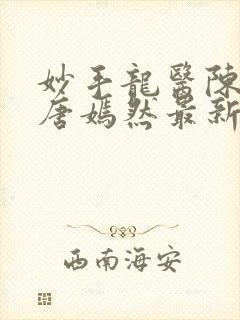 妙手龍醫陳
唐嫣然最新
西南海安